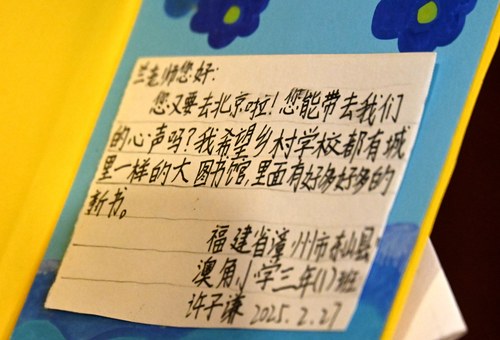 兰老师您好:
您又要去北京啦!您能带去我们
的心声吗?我希望乡村学校都有城
里一样的大图书馆,里面有好多好多的
新书。
福建省漳州市东山县
澳角小学三年(1)班
许子谦 2025.2.27